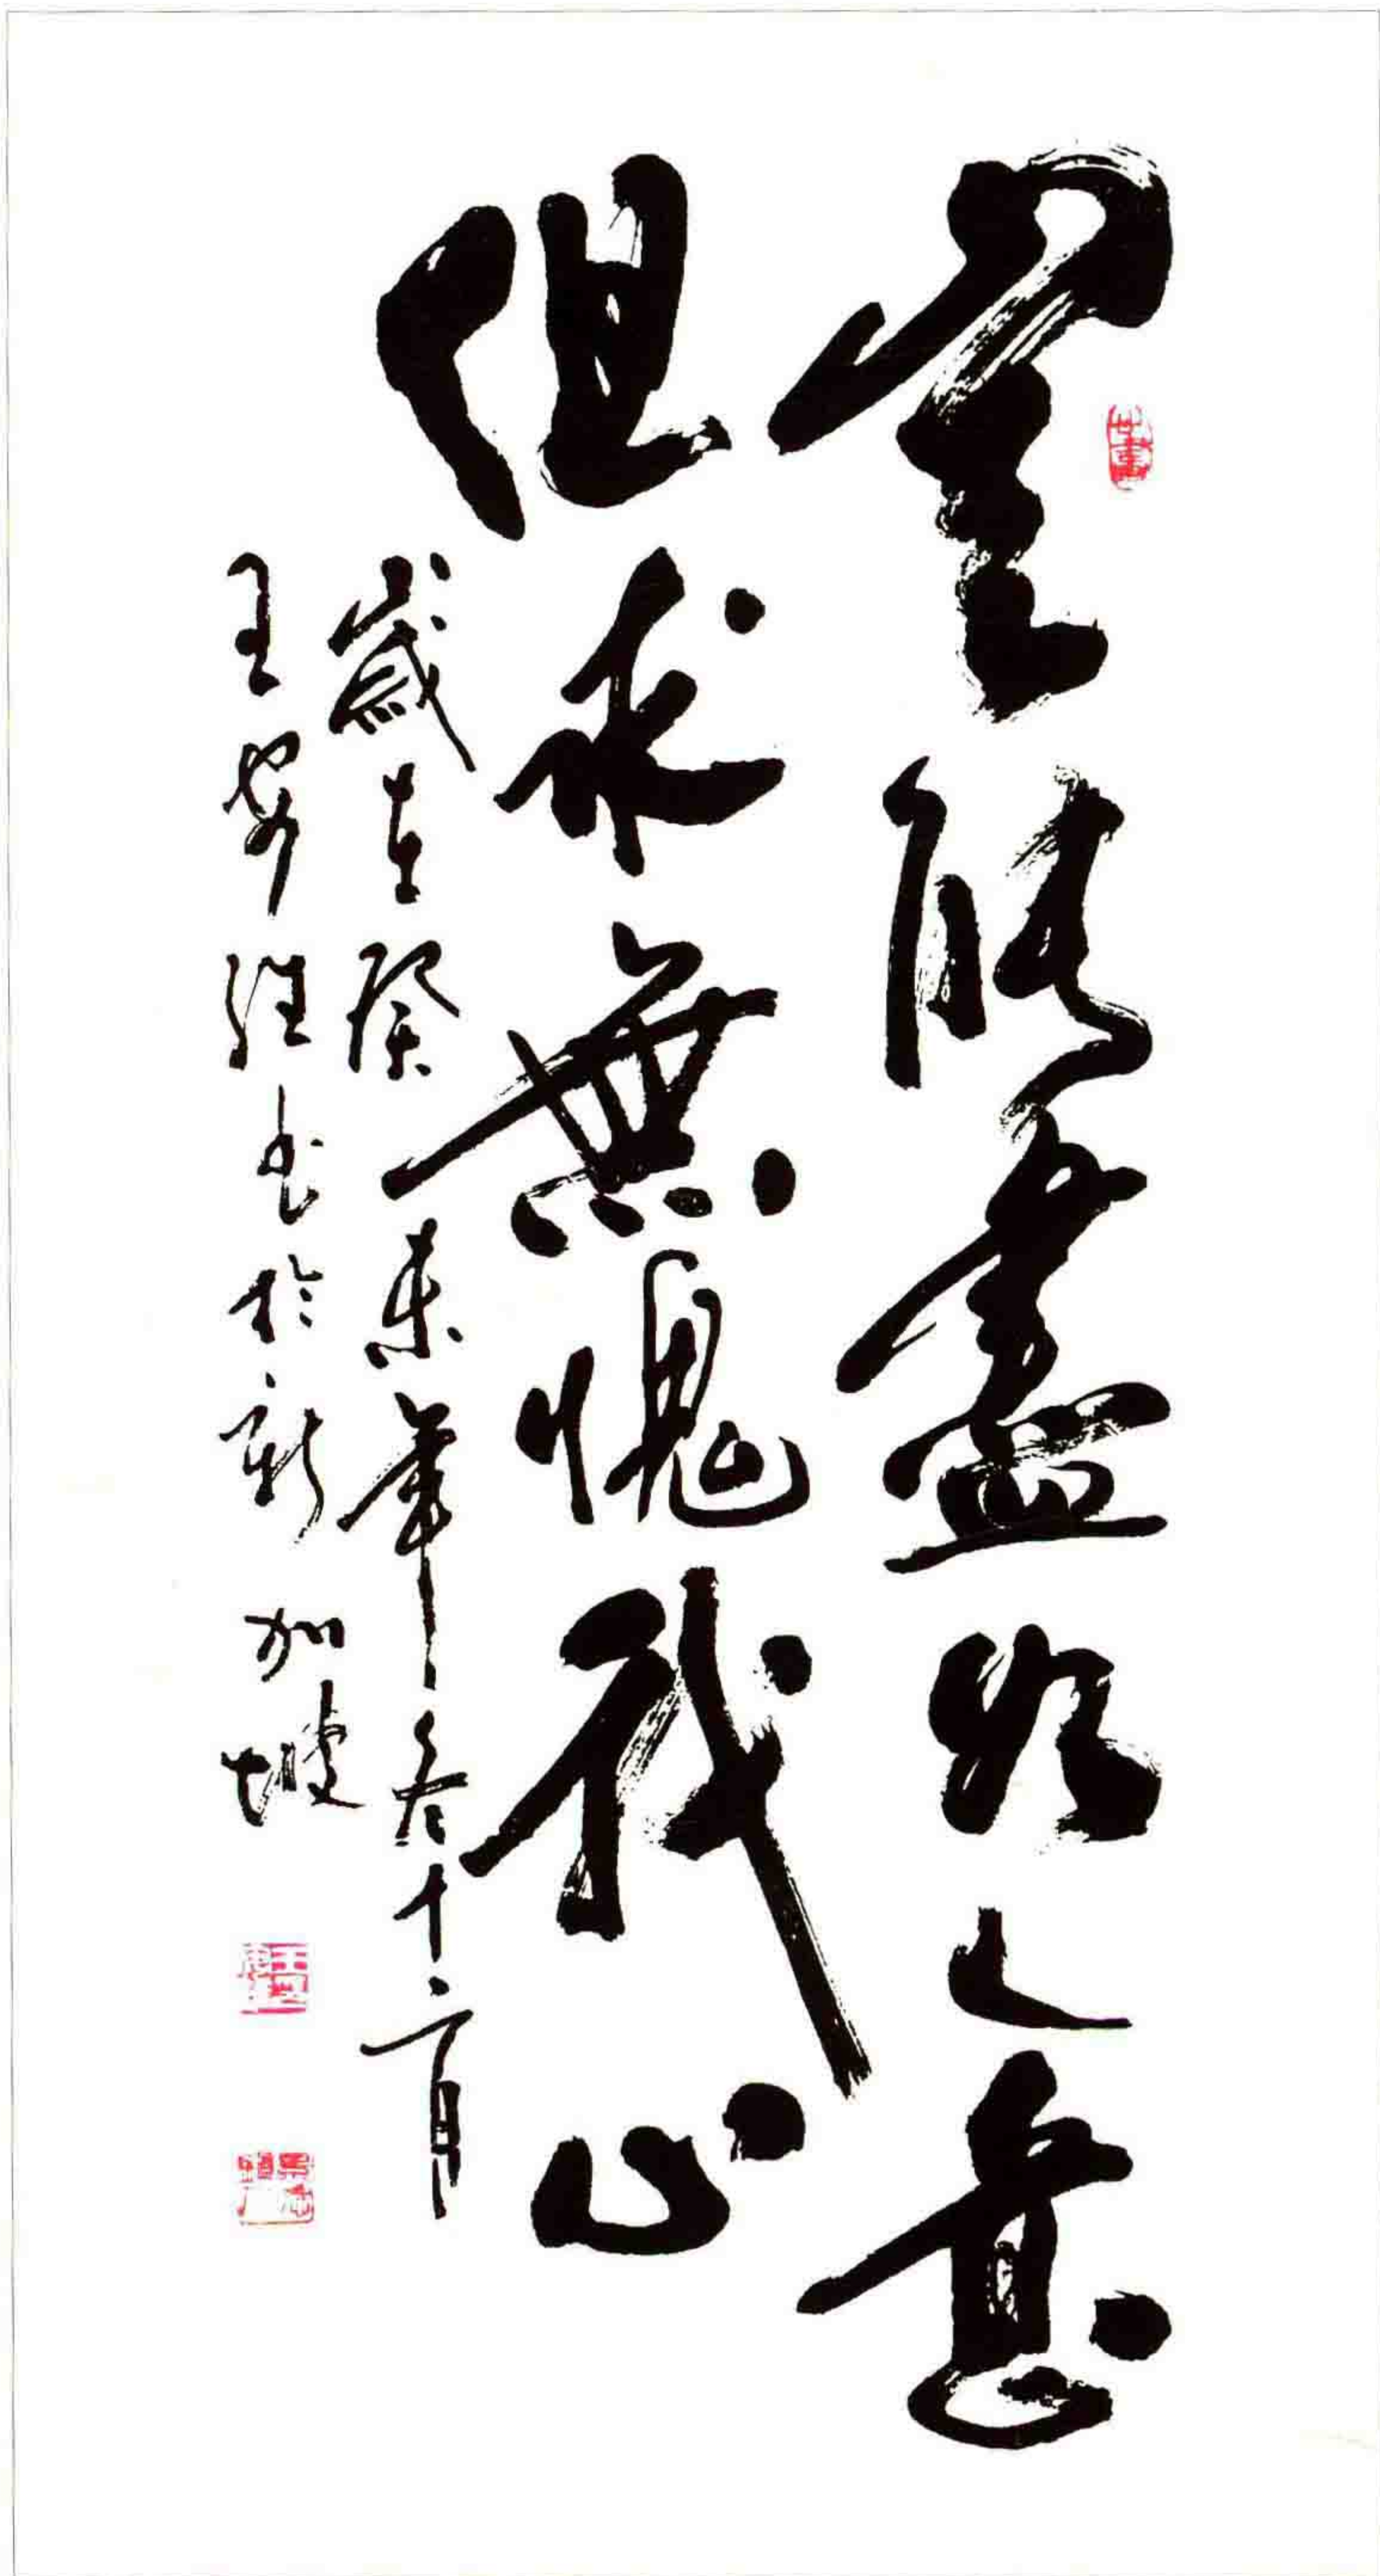 豈能盡如人意
但求無愧我心
歲在癸未年冬十二月
王 書於新加坡